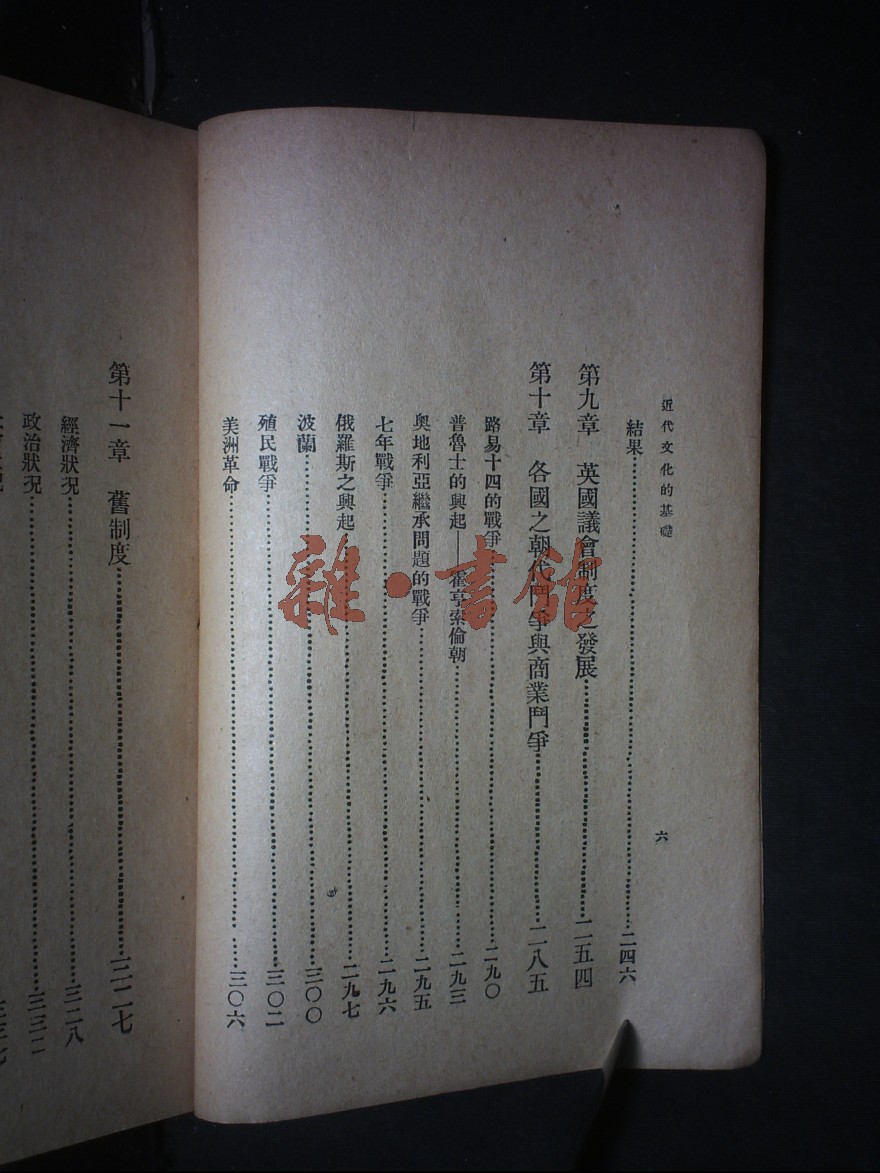 近代文化的基礎
六
結果……二四六
第九章 英國議會制度之發展……二五四
第十章 各國之朝代鬥爭與商業鬥爭……二八五
路易十四的戰爭……二九〇
普魯士的興起——霍亨索倫朝……二九三
奧地利亞繼承問題的戰爭……二九五
七年戰爭……二九六
俄羅斯之興起……二九七
波蘭……三〇〇
殖民戰爭……三〇二
美洲革命……三〇六
第十一章 舊制度……三二七
經濟狀況……三二八
政治狀況……三三二
雜·書館